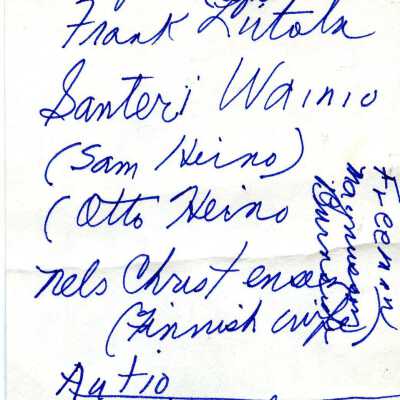 Frank Liitola
Santeri Wainio
(Sam Heino)
(Otto Heino
Nels Christensen
(Finnish wife)
Autio
Freeman
Magnuson